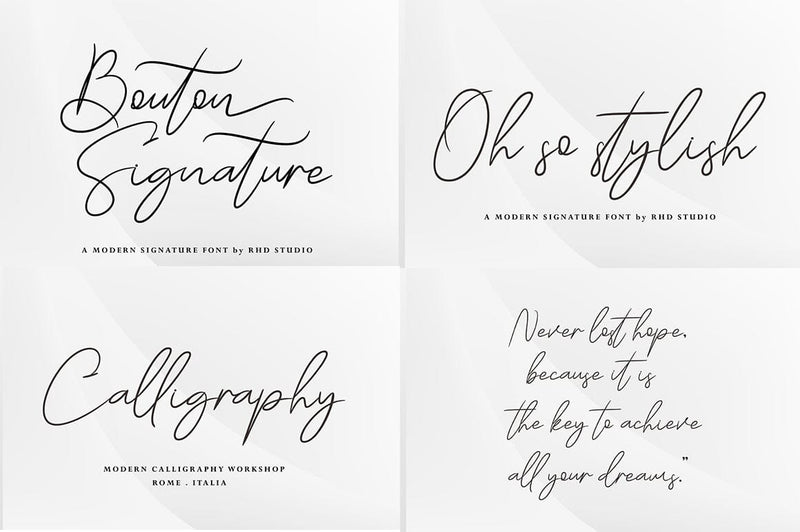 Bouton
Signature
A MODERN SIGNATURE FONT by RHD STUDIO
Oh so stylish
A MODERN SIGNATURE FONT by RHD STUDIO
Calligraphy
MODERN CALLIGRAPHY WORKSHOP
ROME . ITALIA
Never lost hope,
because it is
the key to achieve
all your dreams.”